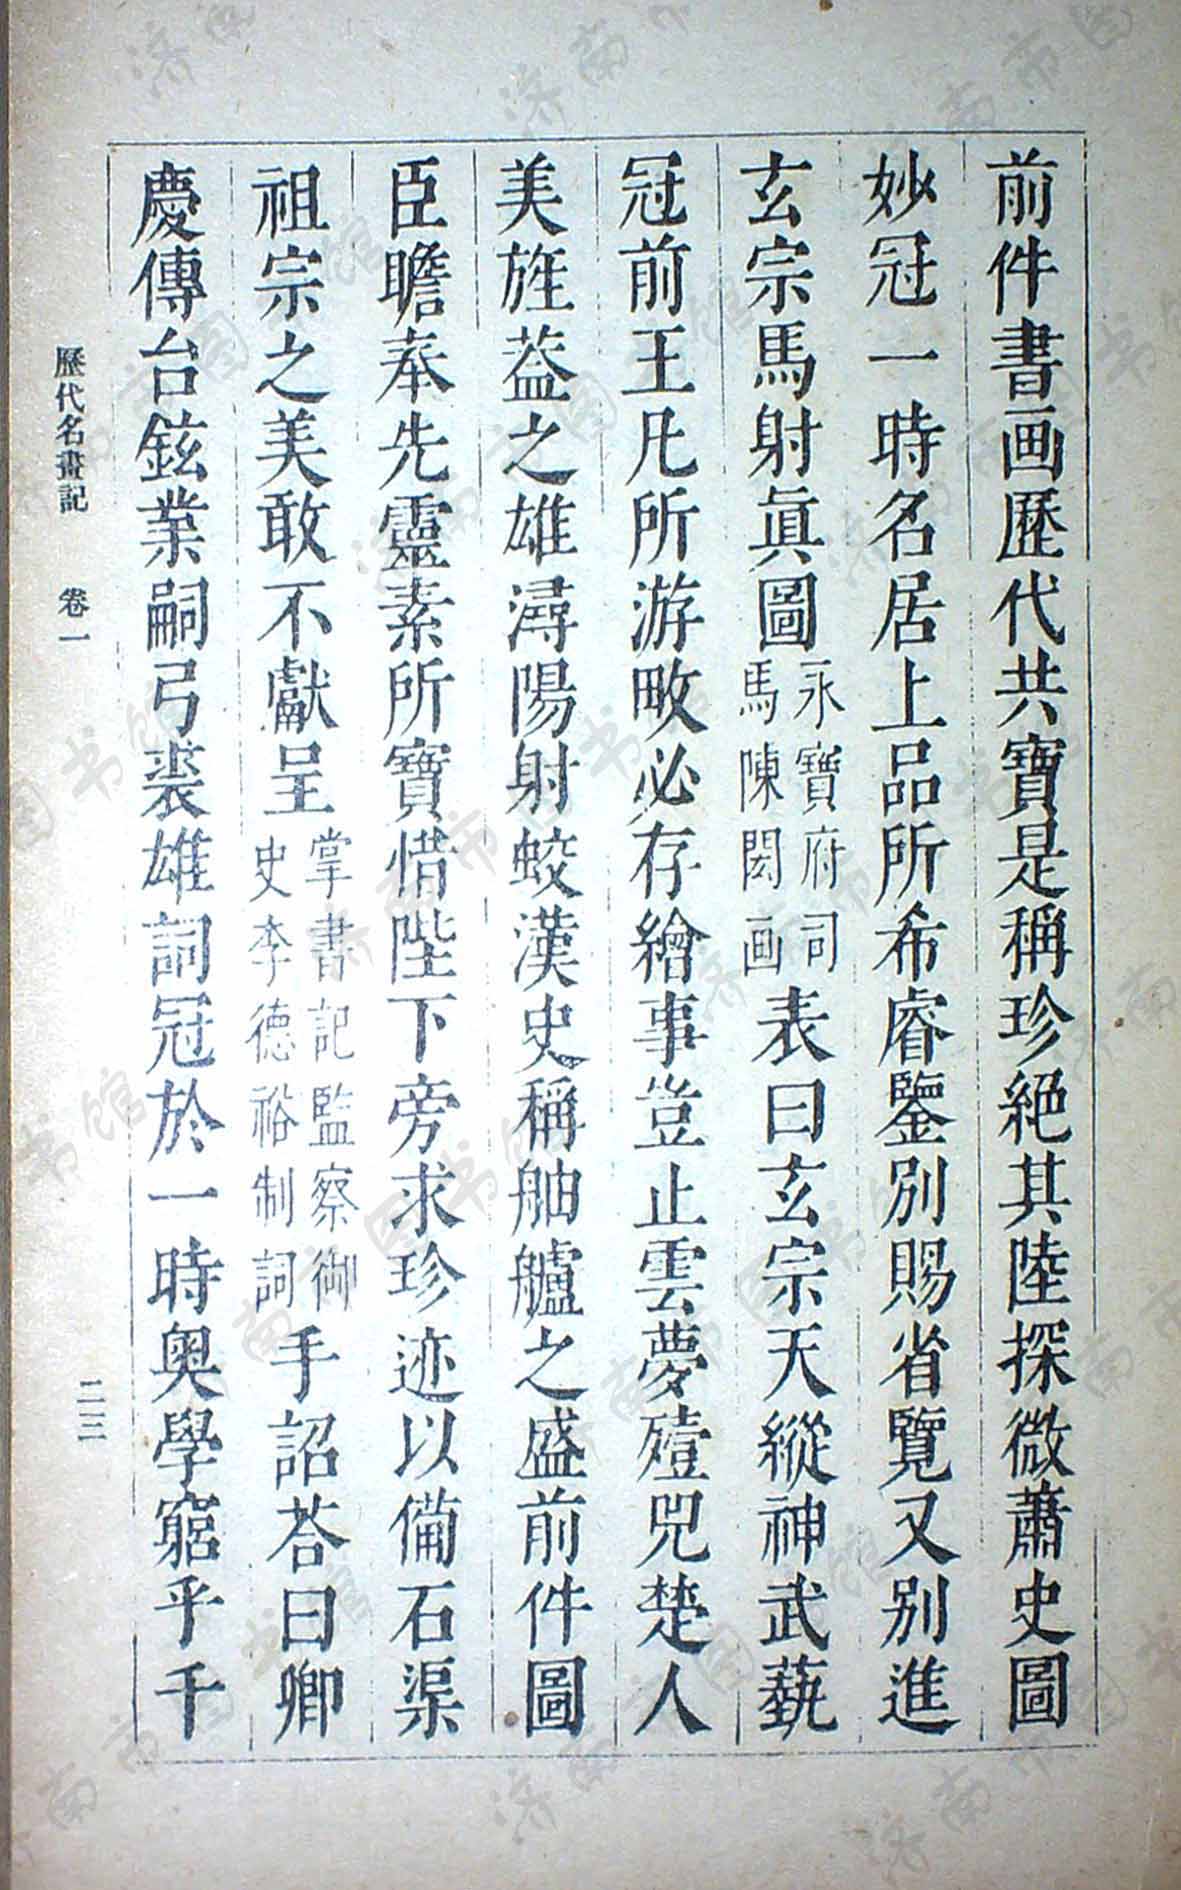 前件書画歷代共寶是稱珍絕其陸探微蕭史圖
妙冠一時名居上品所希睿鑒別賜省覽又别進
玄宗馬射眞圖
永寶府司
馬陳閎画
表曰玄宗天縱神武藝
冠前王凡所游畋必存繪事豈止雲夢殪兕楚人
美旌葢之雄潯陽射蛟漢史稱舳艫之盛前件圖
臣瞻奉先靈素所寶惜陛下旁求珍迹以備石渠
祖宗之美敢不獻呈
掌書記監察御
史李德裕制詞
手詔荅曰卿
慶傳台鉉業嗣弓裘雄詞冠於一時奥學窮乎千
歷代名畫記 卷一 二三